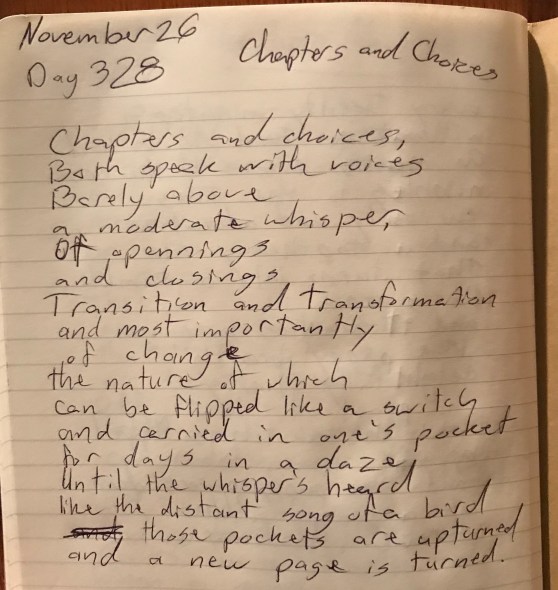 November 26
Chapters and Choices
Day 328
Chapters and choices,
Both speak with voices
Barely above
a moderate whisper,
Of opennings
and closings
Transition and transformation
and most importantly
of change
the nature of which
can be flipped like a switch
and carried in one's pocket
for days in a daze,
Until the whisper's heard
like the distant song of a bird
and those pockets are upturned
and a new page is turned.